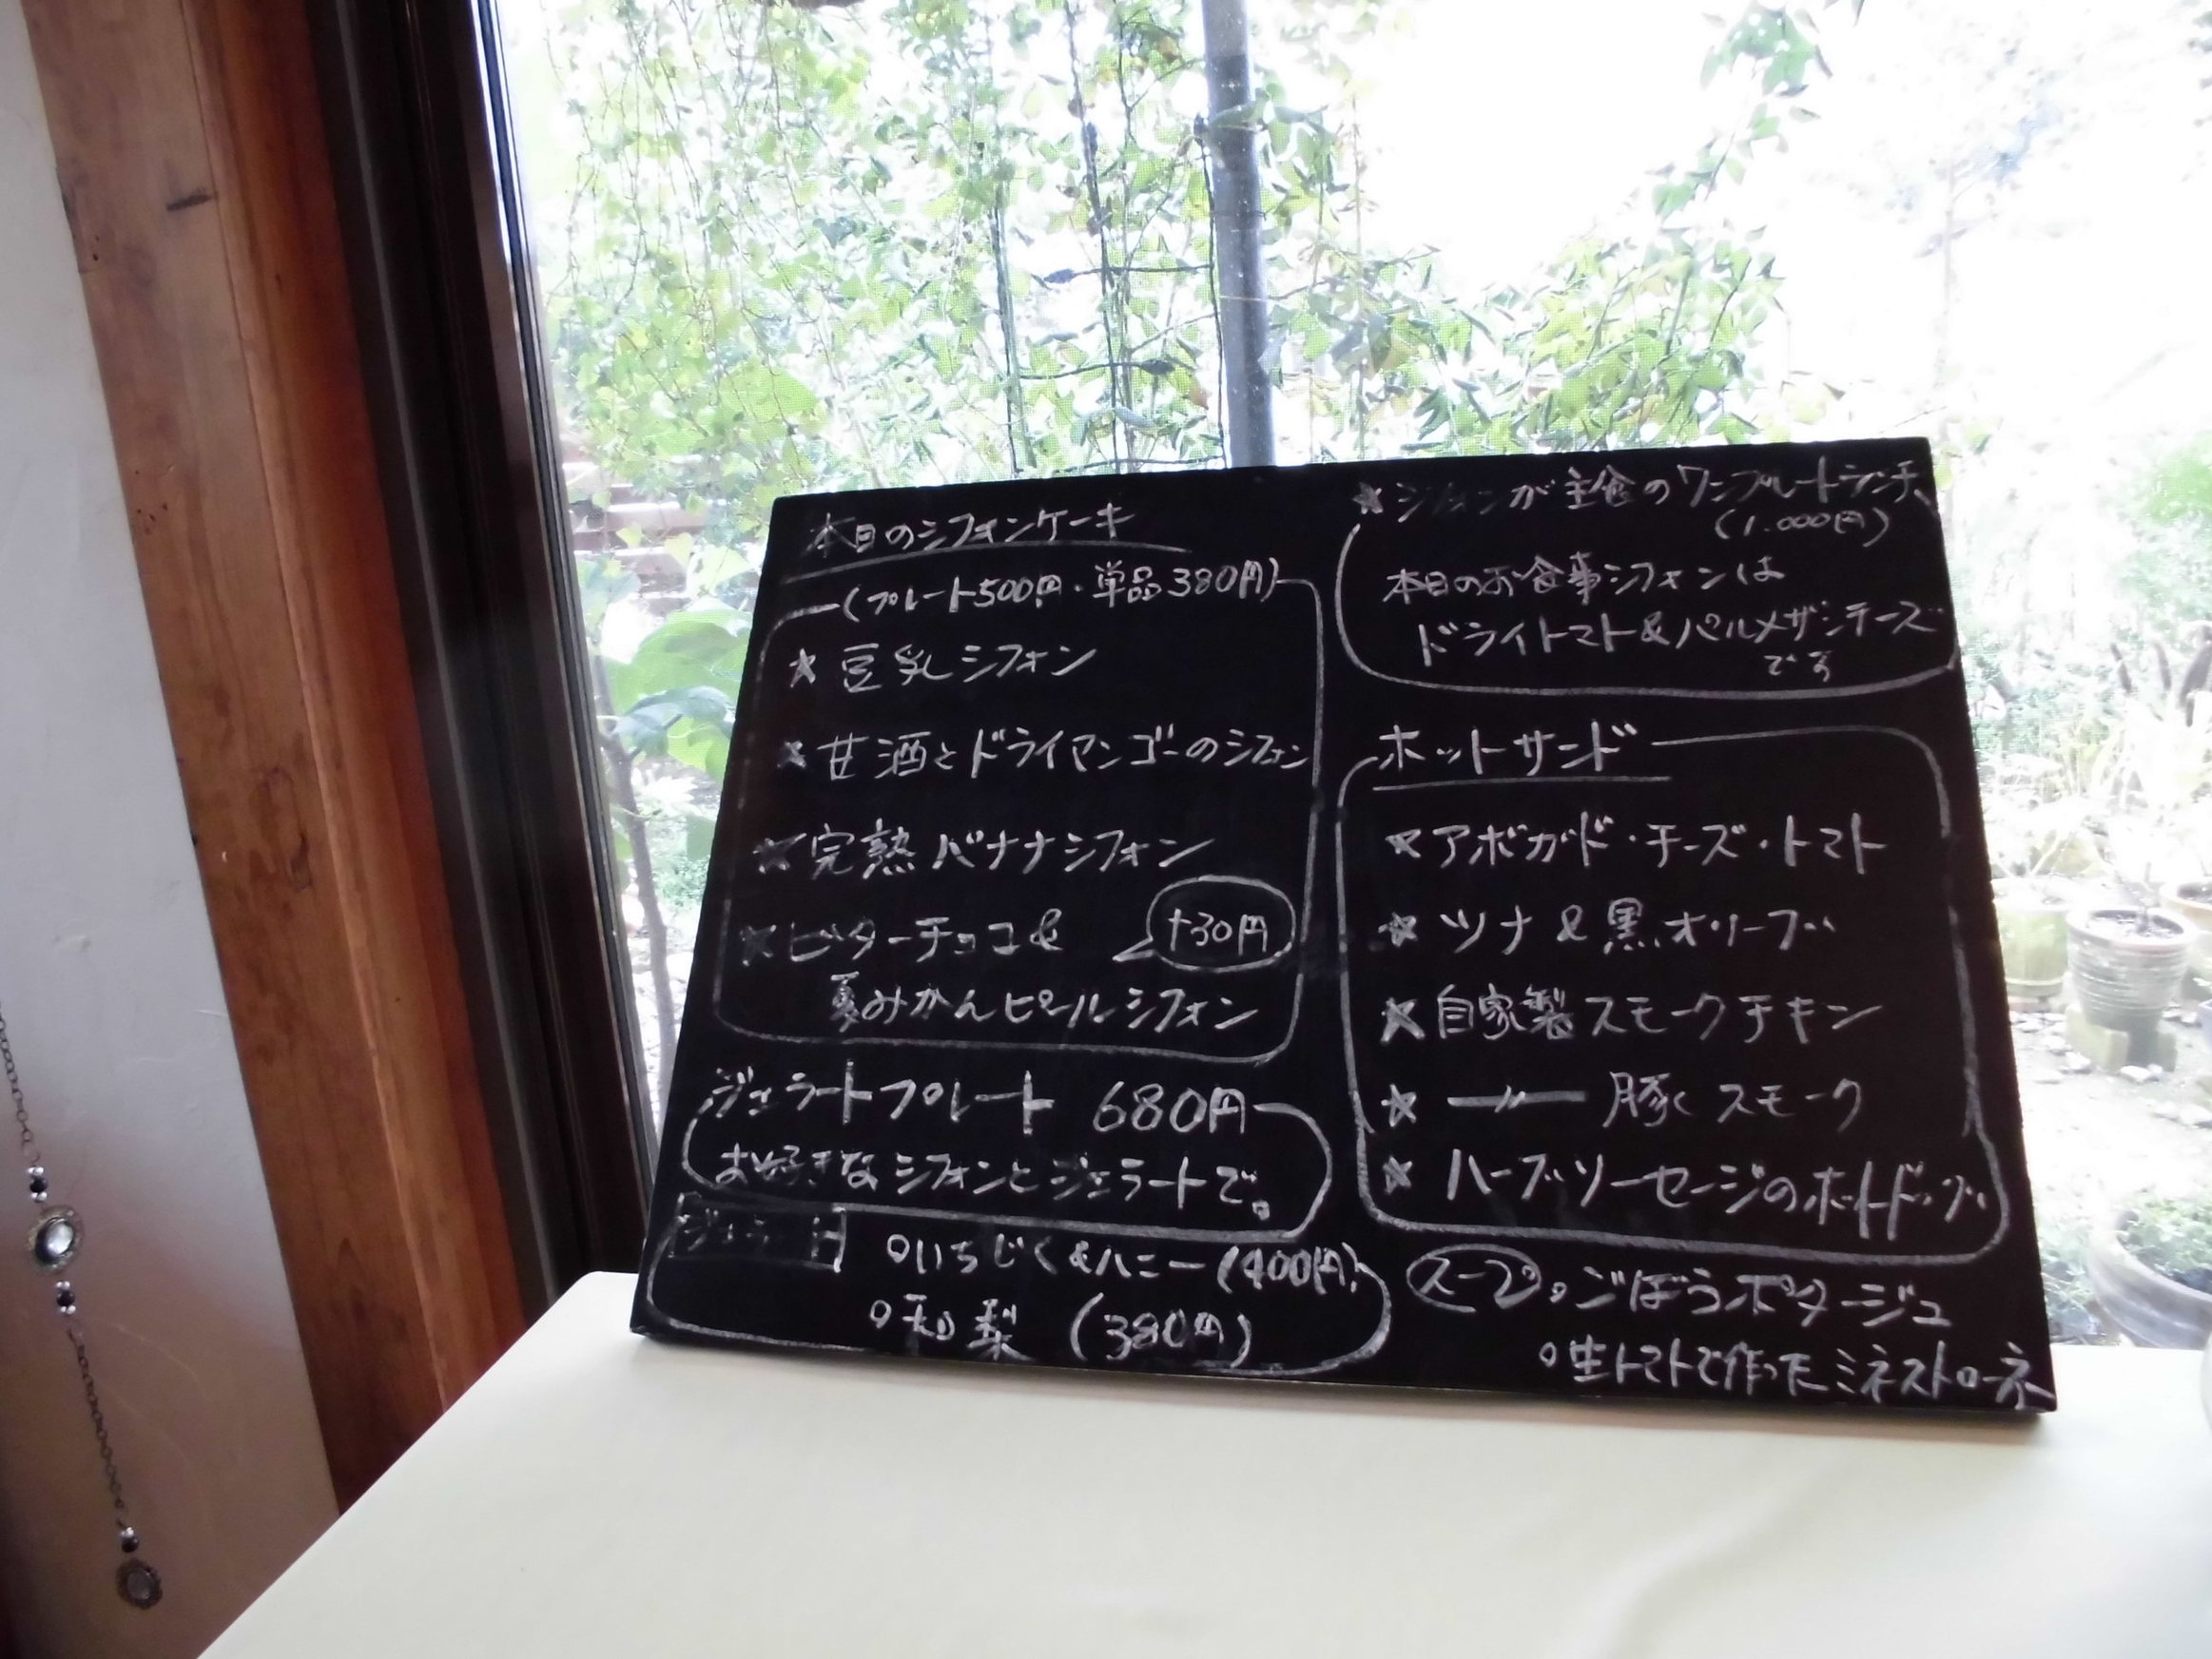 本日のシフォンケーキ
(プレート500円・単品380円)
★豆乳シフォン
★甘酒とドライマンゴーのシフォン
★完熟バナナシフォン
★ビターチョコ&
+30円
夏みかんピールシフォン
ジェラートプレート 680円
お好きなシフォンとジェラートで。
○いちじく&ハニー(400円)
○和梨(380円)
★シフォンが主食のワンプレートランチ
(1.000円)
本日のお食事シフォンは
ドライトマト&パルメザンチーズ
です
ホットサンド
★アボガド・チーズ・トマト
★ツナ&黒オリーブ
★自家製スモークチキン
★ 〃 豚スモーク
★ハーブソーセージのホットドッグ
スープ。ごぼうポタージュ
○生トマトで作ったミネストローネ